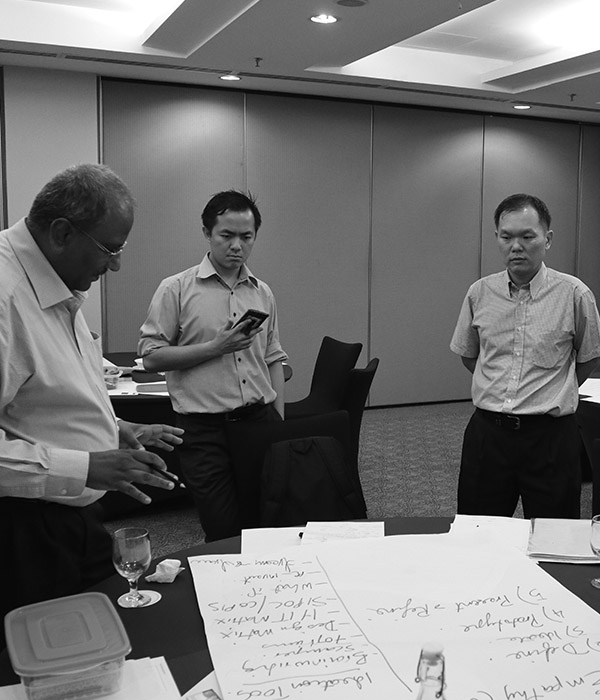 Ideation Tools
- Brainwriting
- Scamper
- Design Matrix
- SIPOC / COPIS
- What if
Empathy
Define
3) Ideate
4) Prototype
5) Present → Refine